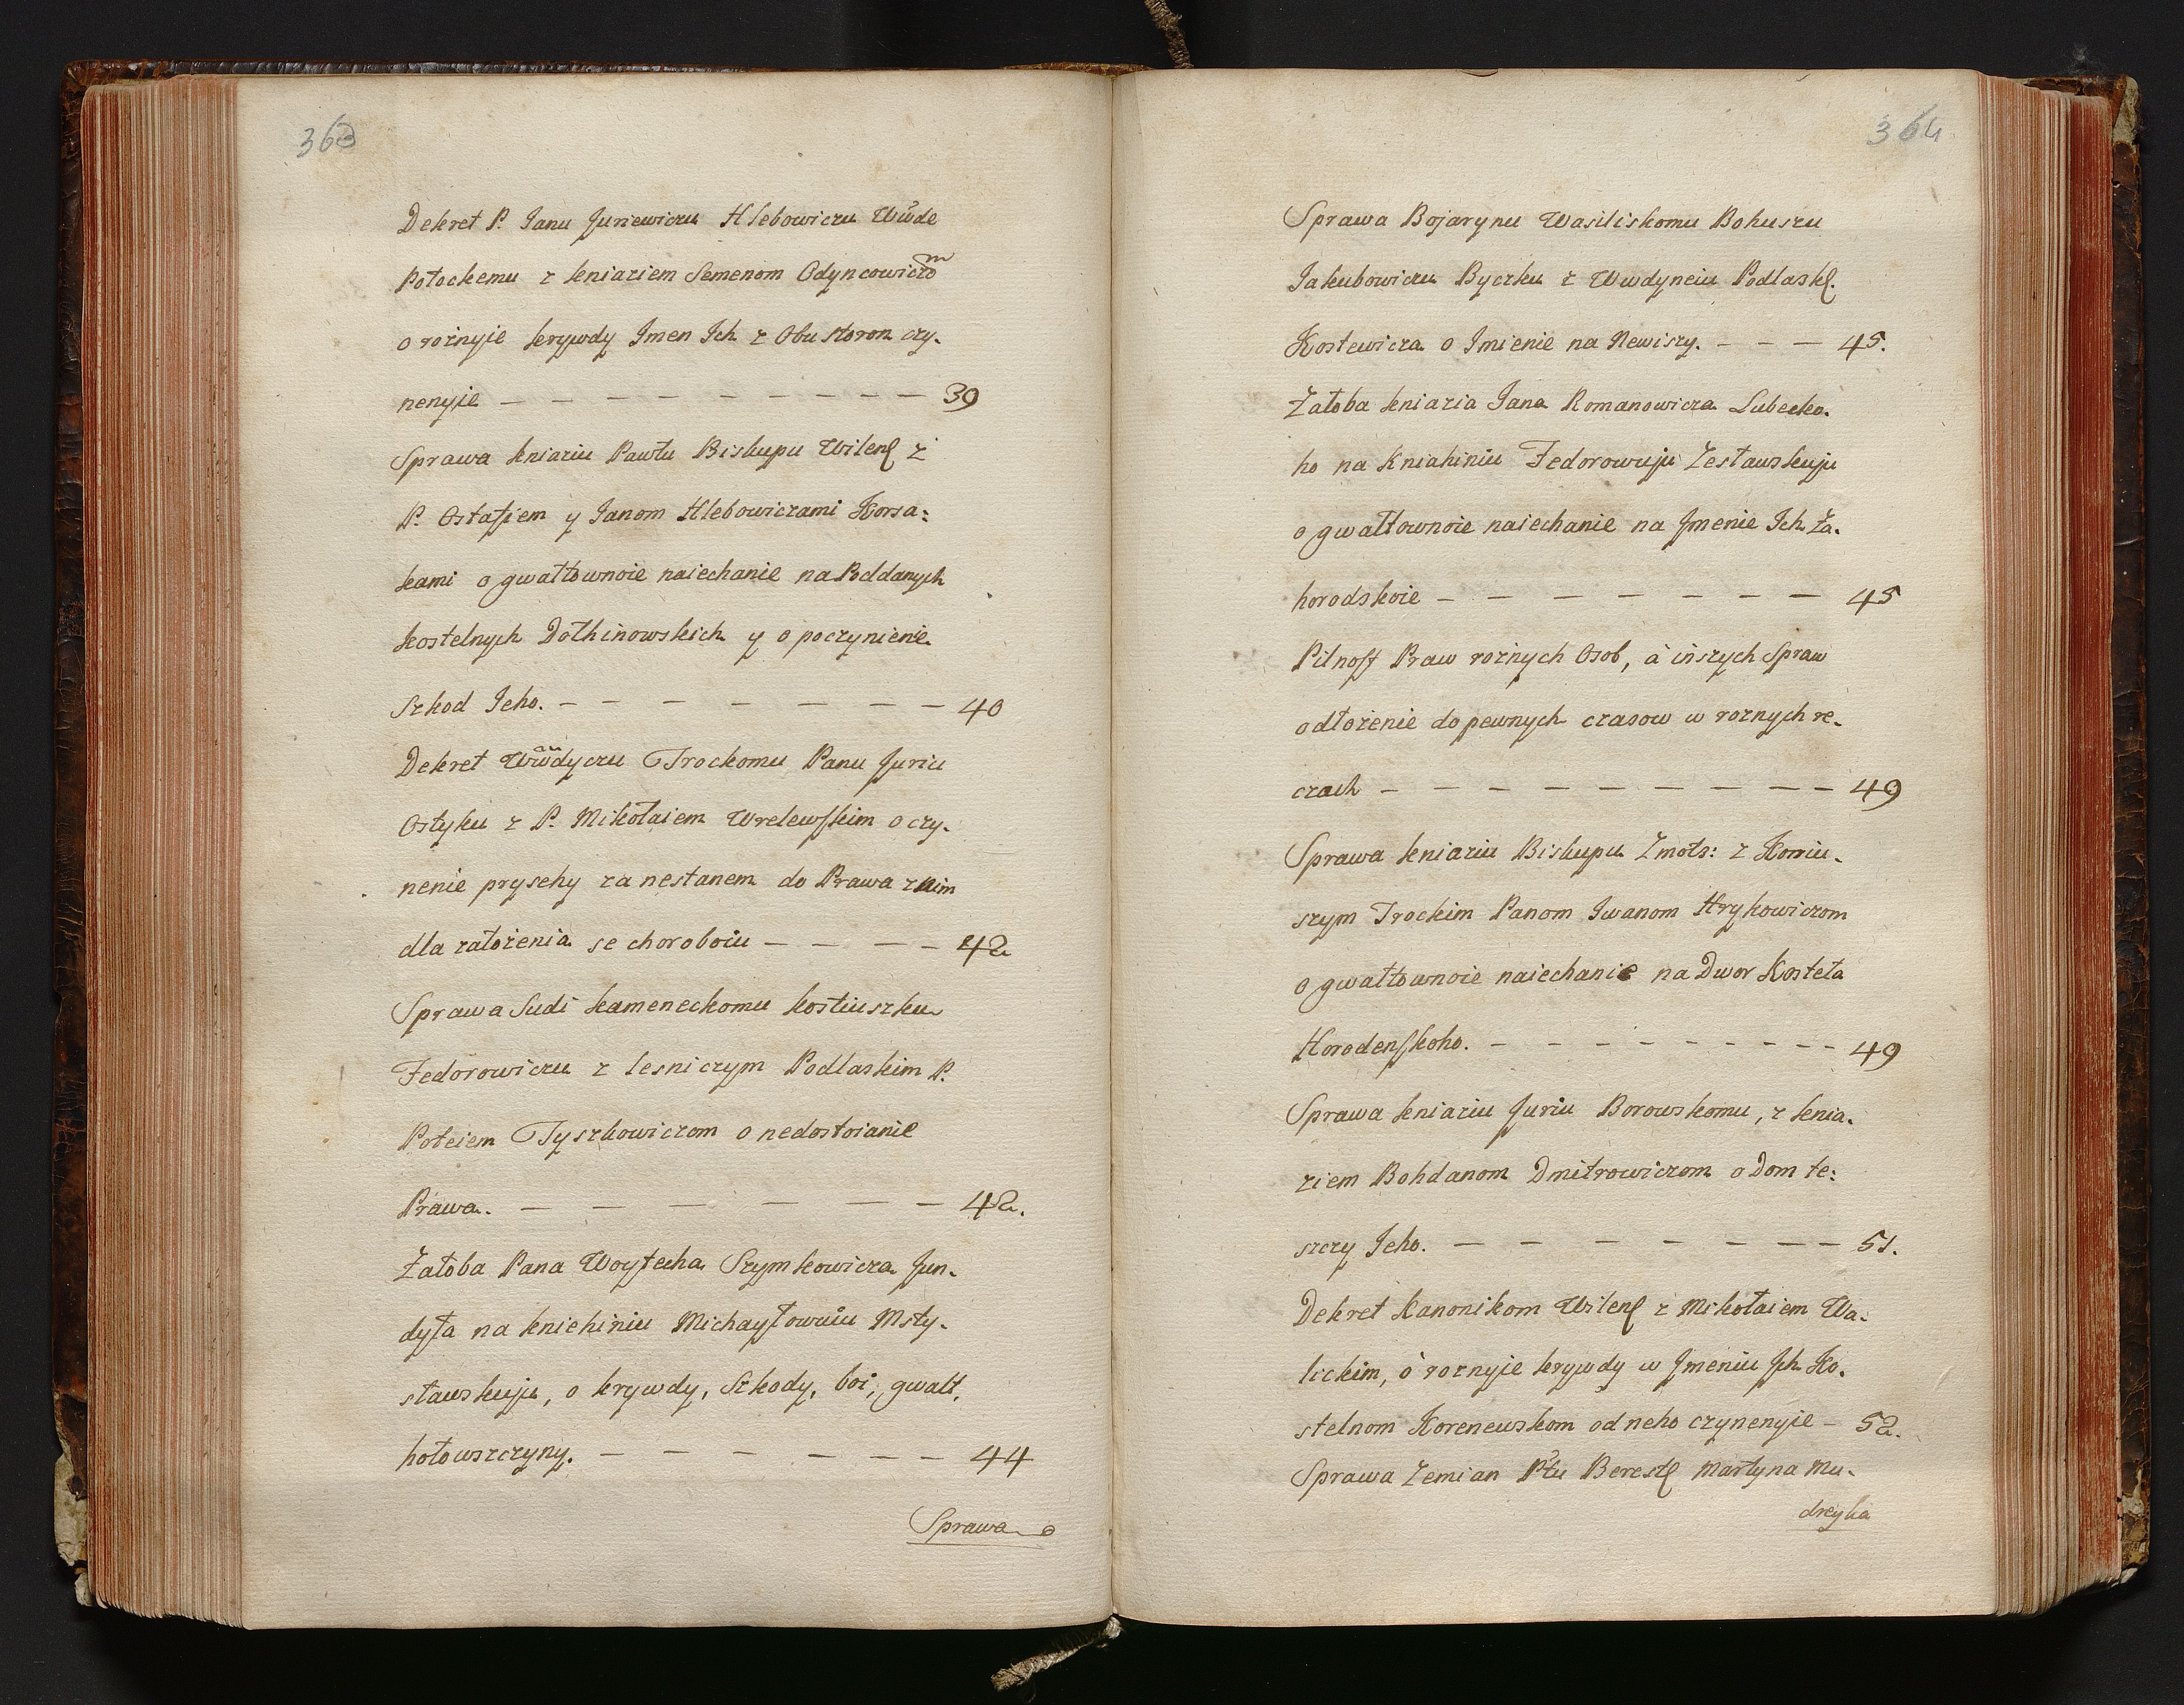 363
Dekret P. Janu Juriewiczu Hlebowiczu Wwde
Połockemu z kniaziem Semenom Odyncowiczom
o rożnyie krywdy Imen Ich z Obu storon czy-
nenyie — — — — — — — — — 39
Sprawa kniaziu Pawłu Biskupu Wilenſ z
P. Ostafiem y Janom Hlebowiczami Korsa:
kami o gwałtownoie naiechanie na Poddanych
kostelnych Dołhinowskich y o poczynienie
Szkod Jeho. — — — — — — — — 40
Dekret Wwdyczu Trockomu Panu Juriu
Ostyku z P. Mikołaiem Wrelewskim o czy-
nenie prysehy za nestanem do Prawa z nim
dla założenia se choroboiu — — — — 42
Sprawa Sudi kameneckomu kostiuszku
Fedorowiczu z lesniczym Podlaskim P.
Poteiem Tyszkowiczom o nedostoianie
Prawa. — — — — — — 42.
Żałoba Pana Woytecha Szymkowicza Jun-
dyła na kniehiniu Michayłowuiu Msty-
sławskuju, o krywdy, szkody, boi, gwałt,
hołowszczyny. — — — — — — 44
Sprawa
364
Sprawa Bojarynu Wasiliskomu Bohuszu
Jakubowiczu Byczku z Wwdynciu Podlaskſ.
Kostewicza o Imienie na Newiszy. — — — 45.
Żałoba kniazia Jana Romanowicza Lubecko-
ho na Kniahiniu Fedorowuju Zesławskuju
o gwałtownoie naiechanie na Jmenie Ich Za-
horodskoie — — — — — — — — 45
Pilnosť Praw rożnych Osob, á inszych Spraw
odłożenie do pewnych czasow w roznych re-
czach — — — — — — — — — 49
Sprawa kniaziu Biskupu Zmots: z Koniu-
szym Trockim Panom Iwanom Hrykowiczom
o gwałtownoie naiechanie na Dwor Kosteła
Horodenskoho. — — — — — — — — 49
Sprawa kniaziu Juriu Borowskomu, z knia-
ziem Bohdanom Dmitrowiczom o Dom te:
szczy Jeho. — — — — — — — — 51.
Dekret Kanonikom Wilenſ z Mikołaiem Wa-
lickim, ó roznyie krywdy w Jmeniu Jch Ko-
stelnom Korenewskom od neho czynenyie — 52.
Sprawa Zemian Płtu Berestſ Martyna Mu-
dreyka